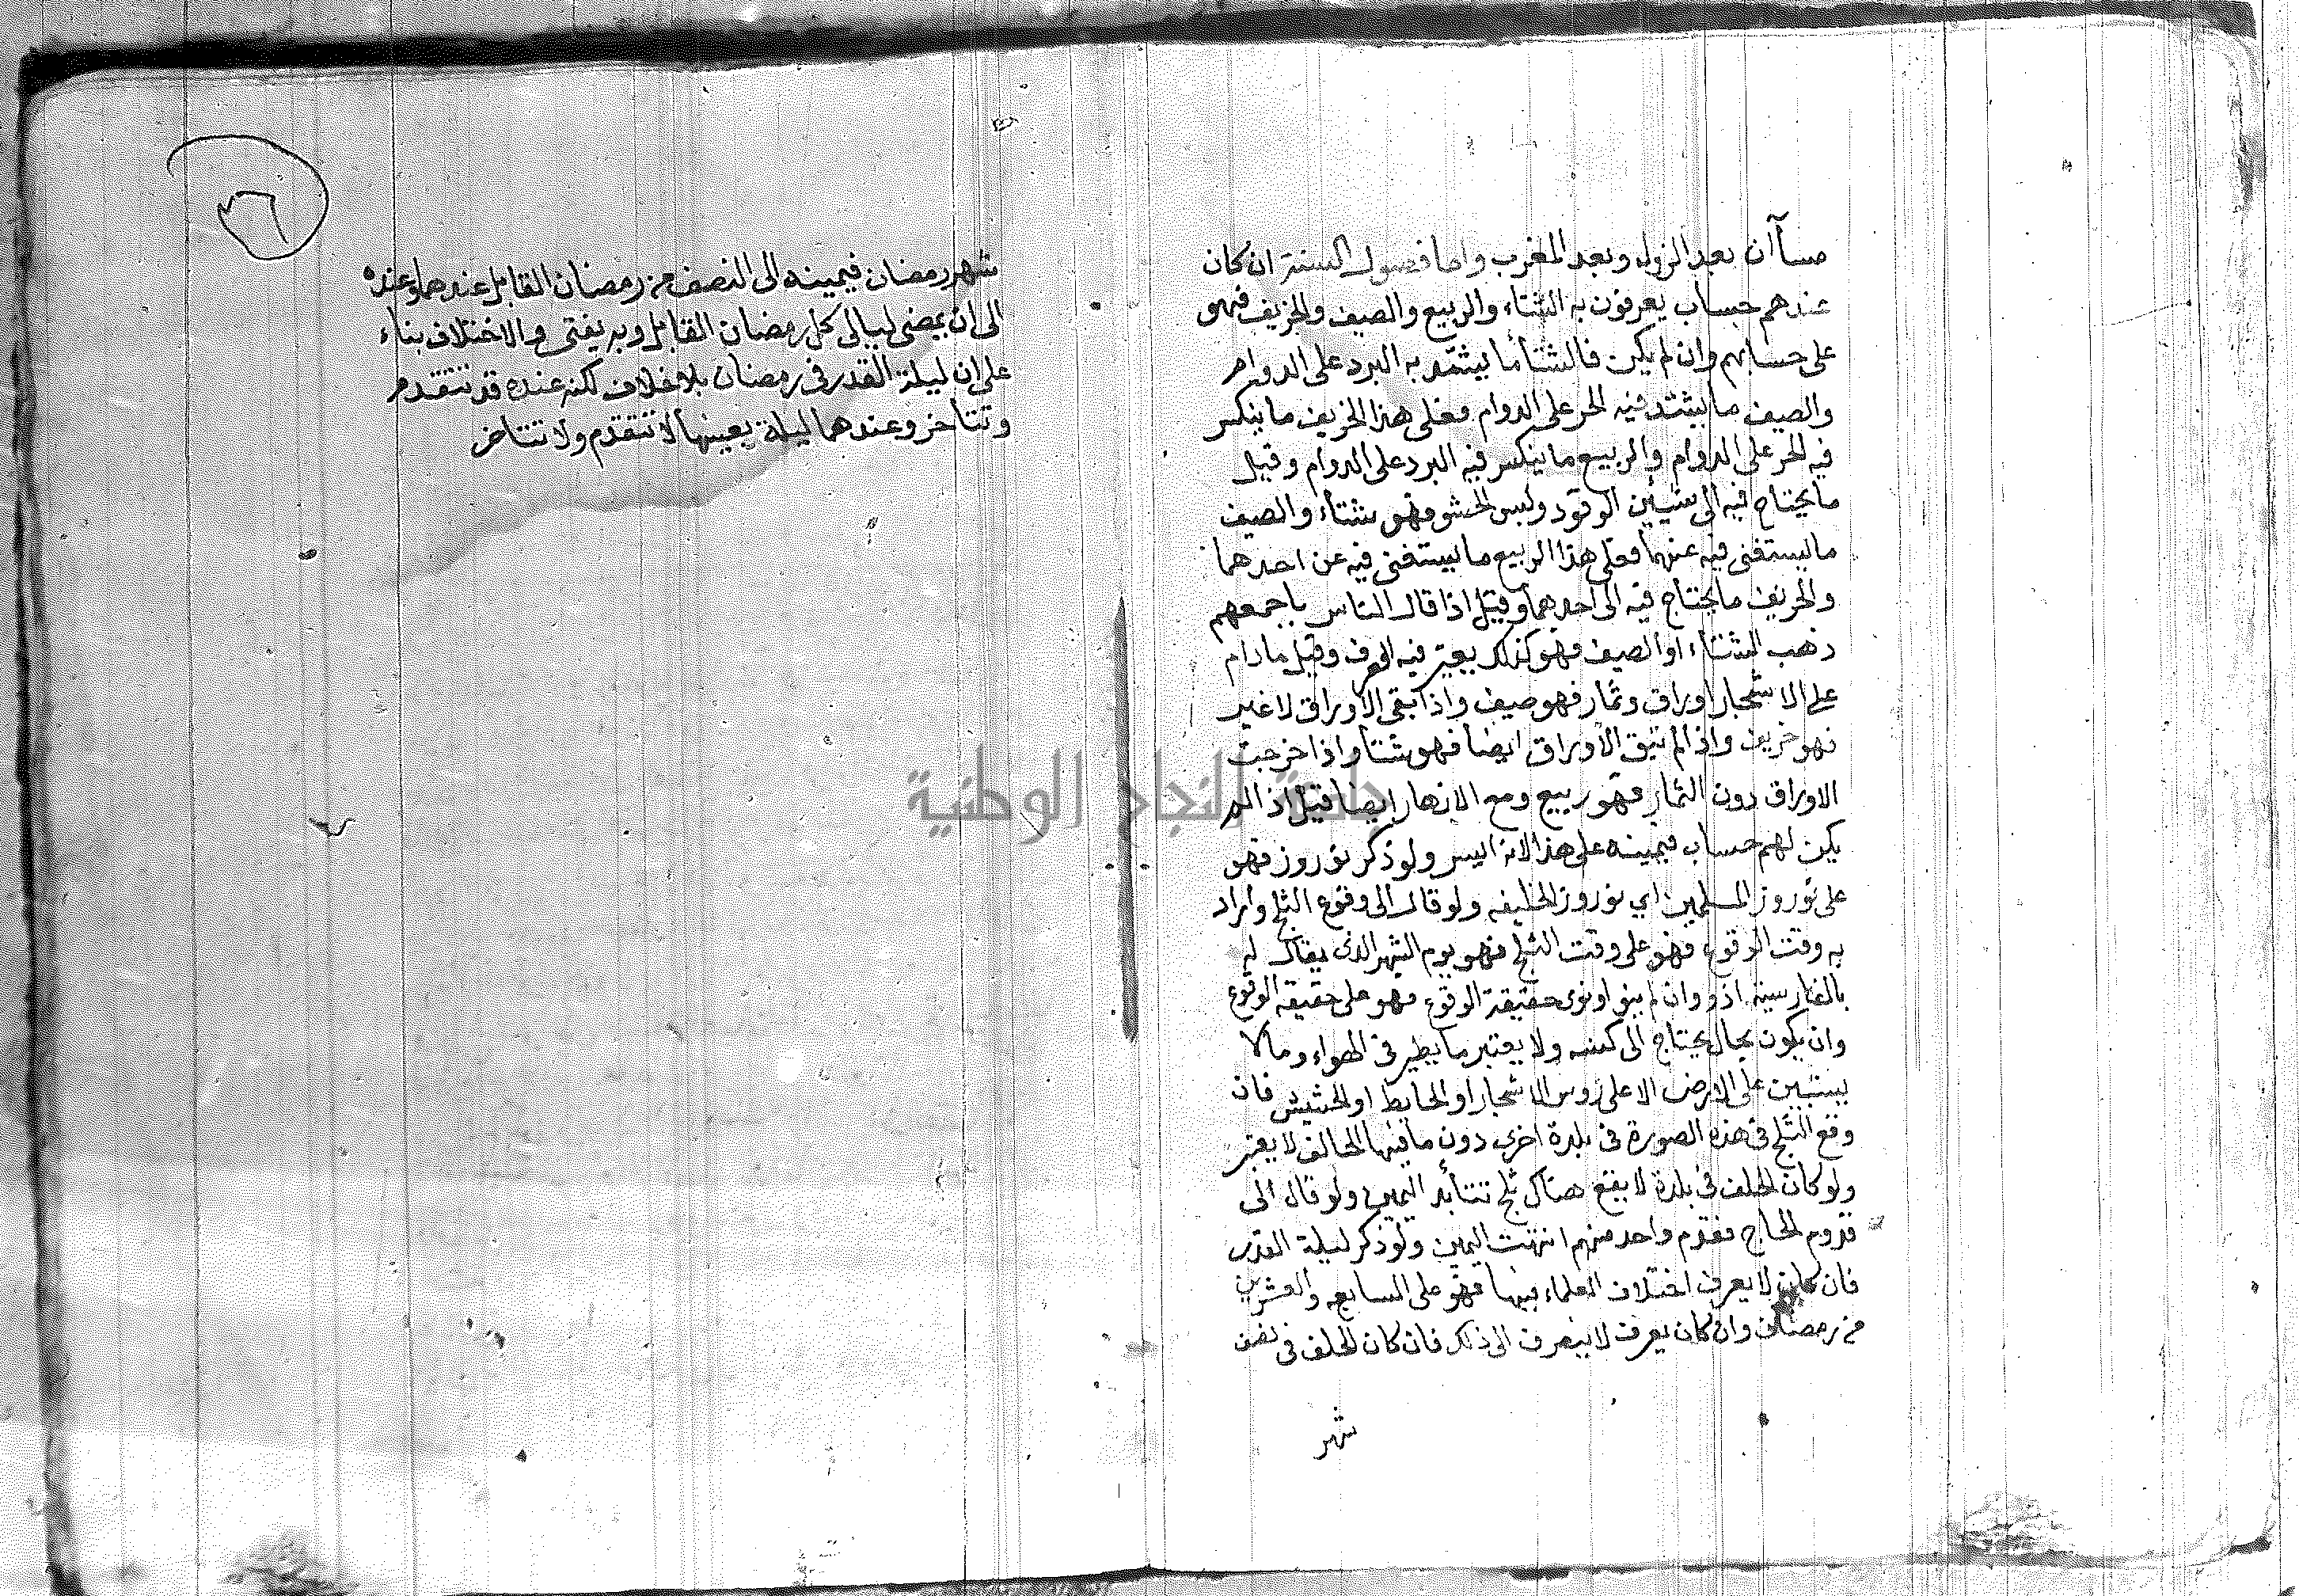 مساآن بعد الزوال وبعد المغرب واما فصول السنة ان كان
عندهم حساب يعرفون به الشتاء والربيع والصيف والخريف فهو
على حسابهم وان لم يكن فالشتأ ما يشتد به البرد على الدوام
والصيف ما يشتد فيه الحر على الدوام فعلى هذا الخريف ما ينكسر
فيه الحر على الدوام والربيع ما ينكسر فيه البرد على الدوام وقيل
ما يحتاج فيه الى شيئين الوقود ولبس الحشو فهو شتاء والصيف
ما يستغنى فيه عنهما فعلى هذا الربيع ما يستغنى فيه عن احدهما
والخريف ما يحتاج فيه الى احدهما وقيل اذا قال الناس باجمعهم
ذهب الشتاء او الصيف فهو كذلك يعتبر فيه العرف وقيل مادام
على الاشجار اوراق وثمار فهو صيف واذا تبقى الاوراق لاغير
فهو خريف واذا لم تبق الاوراق ايضا فهو شتا واذا خرجت
الاوراق دون الثمار فهو ربيع ومع الازهار ايضا قيل اذا لم
يكن لهم حساب فيمينه على هذا لانه ايسر ولو ذكر نوروز فهو
على نوروز المسلمين اي نوروز الخليفه ولو قال الى وقوع الثلج واراد
به وقت الوقوع فهو على وقت الثلج فهو يوم الشهر الذى يقال له
بالفارسية اذر وان لم ينو او نوى حقيقة الوقوع فهو على حقيقه الوقوع
وان يكون بحال يحتاج الى كنسه ولا يعتبر ما يطير فى الهواء ومالا
يستبين على الارض الا على روس الاشجار او الحايط او الحشيش فان
وقع الثلج فى هذه الصورة فى بلدة اخرى دون ما فيها الحالف لا يعتبر
ولو كان الحلف فى بلدة لا يقع هناك ثلج تتأبد اليمين ولو قال الى
قدوم الحاج فقدم واحد منهم انتهت اليمين ولو ذكر ليلة القدر
فان كان لا يعرف اختلاف العلماء فيها فهو على السابعه والعشرين
من رمضان وان كان يعرف لا ينصرف الى ذلك فان كان الحلف فى نصف
شهر
٦
شهر رمضان فيمينه الى النصف من رمضان القابل عندهما وعنده
الى ان يمضى ليالى كل رمضان القابل وبه يفتى والاختلاف بناء
على ان ليلة القدر فى رمضان بلا خلاف لكنه عنده قد تتقدم
وتتأخر وعندهما ليلة بعينها لا تتقدم ولا تتاخر
جامعة النجاح الوطنية